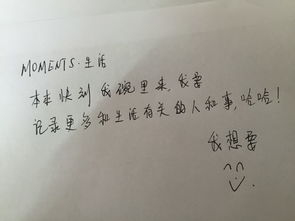 MOMENTS·生活
本本快到我碗里来,我要
记录更多和生活有关的人和事,哈哈!
我想要